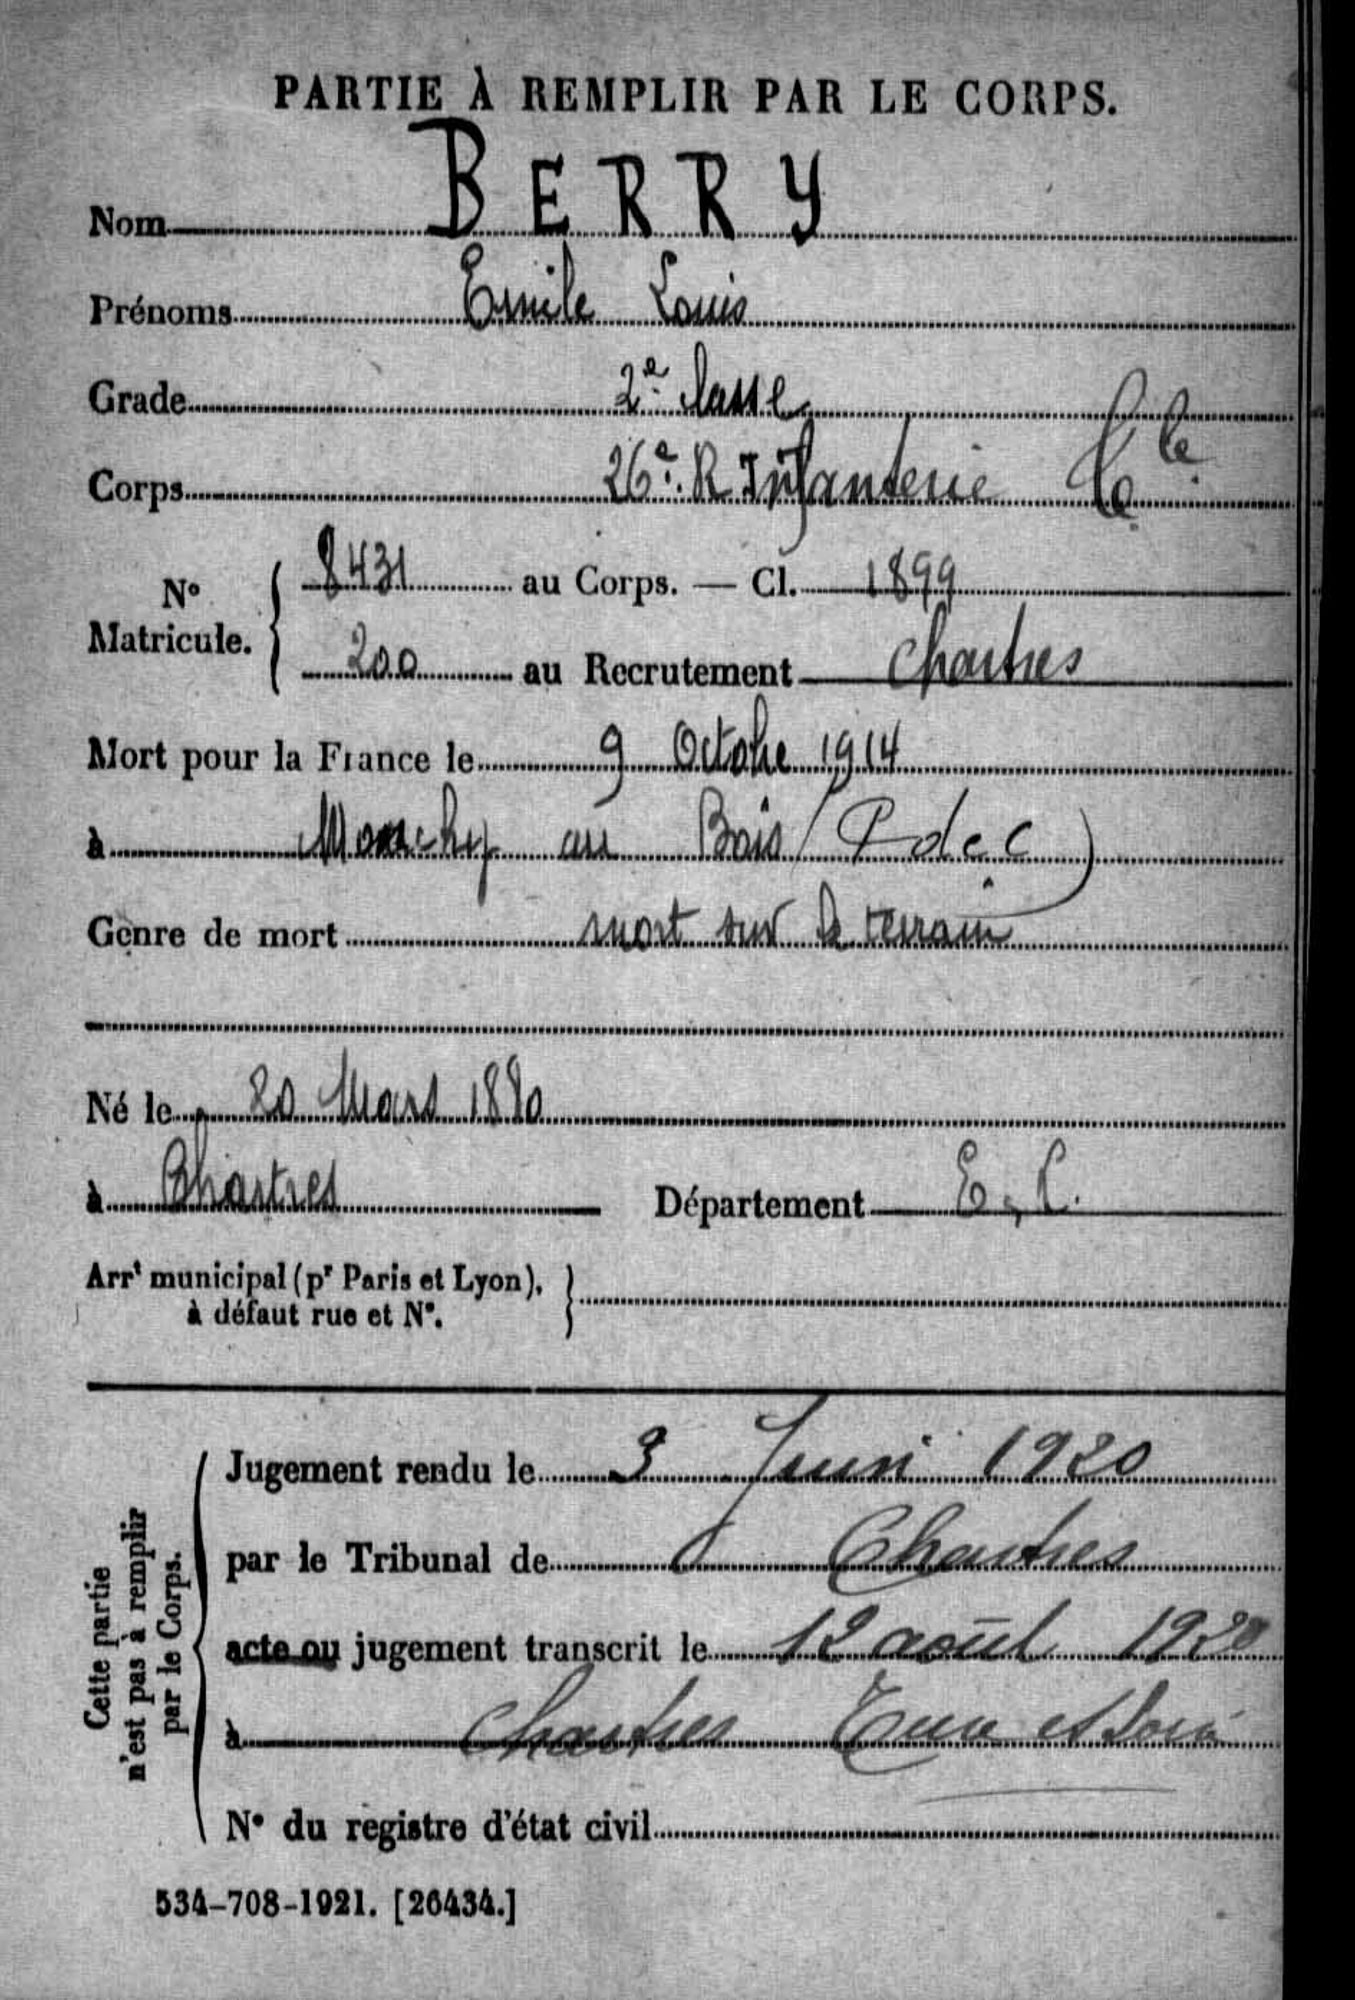 PARTIE À REMPLIR PAR LE CORPS.
Nom BERRY
Prénoms Emile Louis
Grade 2e classe
Corps 26e. R Infanterie Cle
No Matricule. 8431 au Corps. — Cl. 1899
200 au Recrutement Chartres
Mort pour la France le 9 Octobre 1914
à Monchy au Bois (P de C)
Genre de mort mort sur le terrain
Né le 20 Mars 1880
à Chartres Département E. L.
Arrt municipal (pr Paris et Lyon),
à défaut rue et No.
Cette partie
n'est pas à remplir
par le Corps.
Jugement rendu le 3 Juin 1920
par le Tribunal de Chartres
acte ou jugement transcrit le 12 août 1920
à Chartres Eure et Loir
No du registre d'état civil
534-708-1921. [26434.]